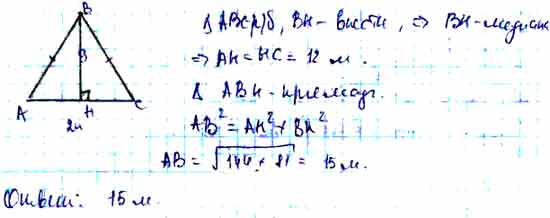 B
9
A
H
C
24
Δ ABC р/б, BH - высота, ⇒ BH - медиана
⇒ AH = HC = 12 м.
Δ ABH - прямоуг.
AB² = AH² + BH²
AB = √144 + 81 = 15 м.
Ответ: 15 м.